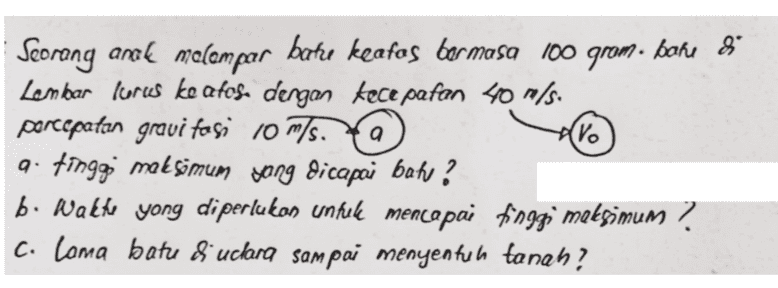 Seorang anak melempar batu keatas bermasa 100 gram. batu di
Lembar lurus keatas dengan kecepatan 40 m/s.
percepatan gravitasi 10 m/s. a V₀
a. tinggi maksimum yang dicapai batu?
b. Waktu yang diperlukan untuk mencapai tinggi maksimum?
c. lama batu diudara sampai menyentuh tanah?